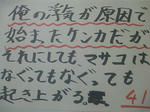 俺の浮気が原因で
始まったケンカだが
それにしても、マサコは
なぐってもなぐっても
起き上がる。
41